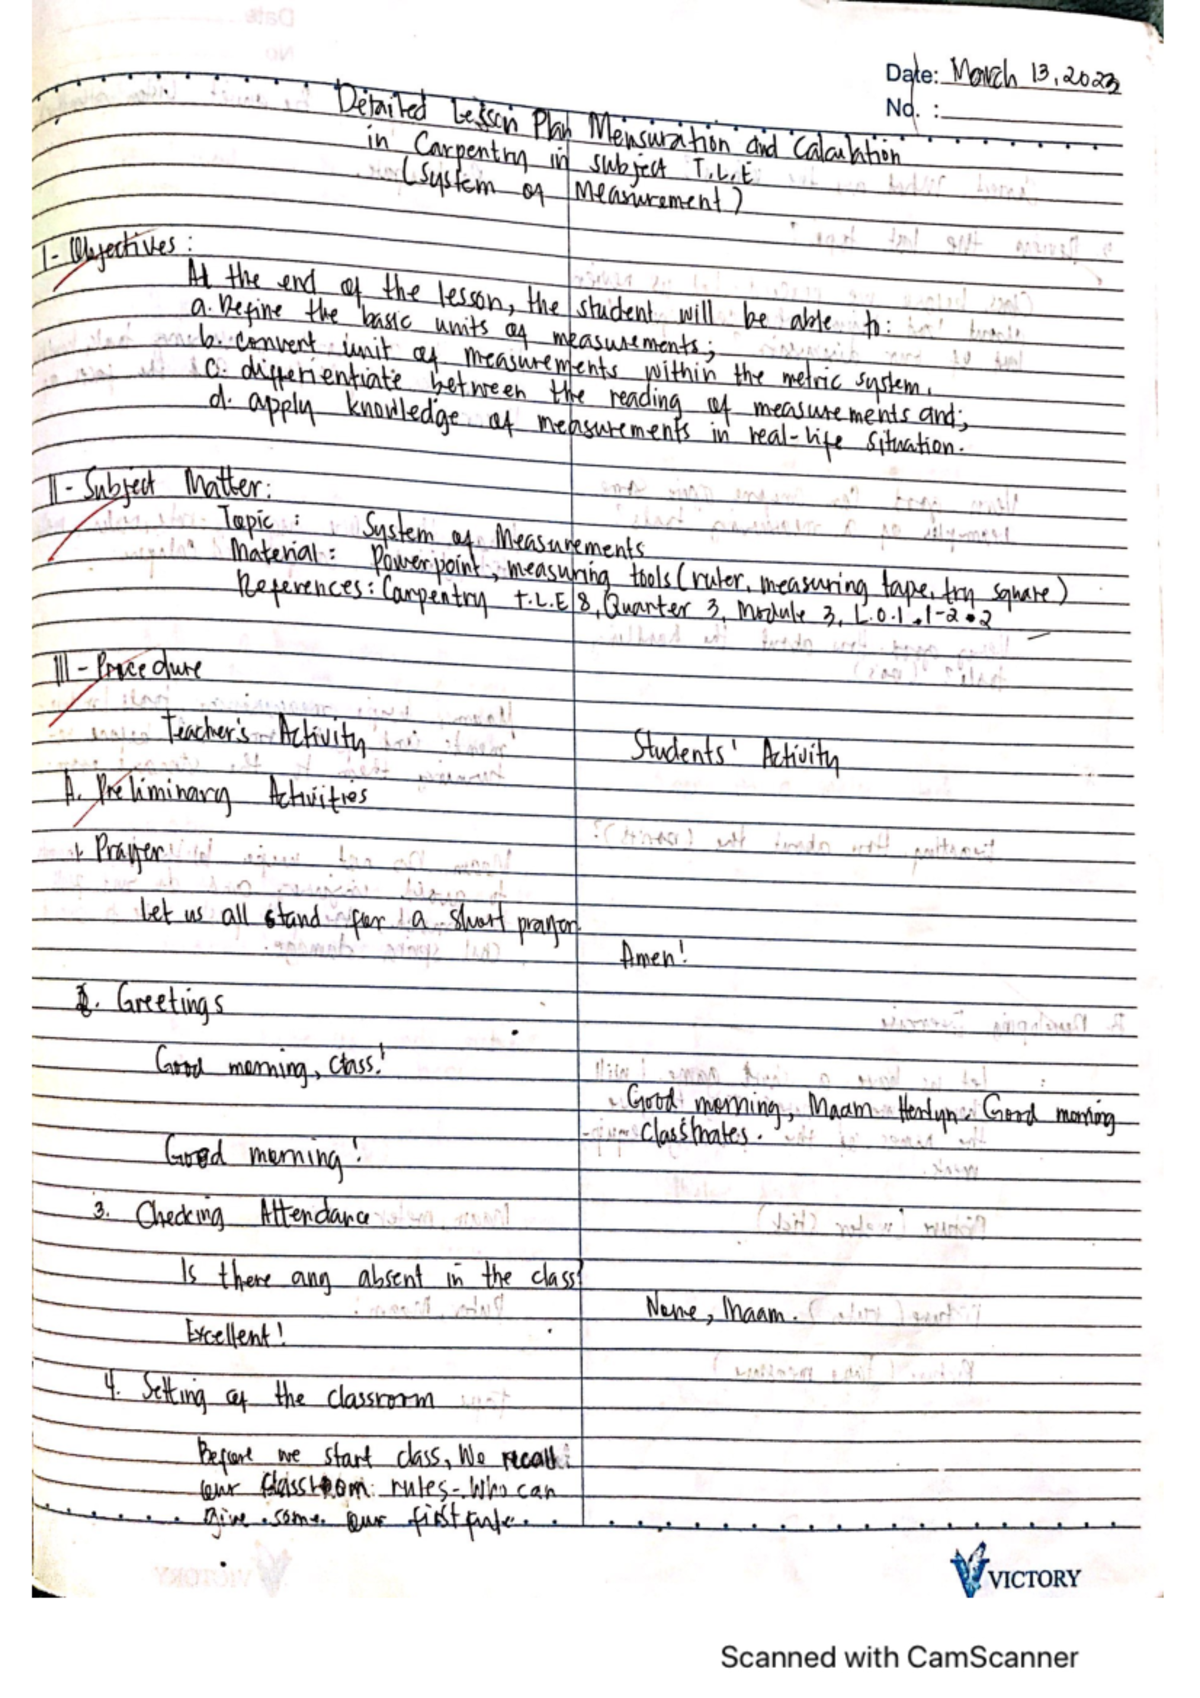 Date: March 13, 2023
No. :
Detailed Lesson Plan Mensuration and Calculation
in Carpentry in subject T.L.E
(System of Measurement)
I- Objectives:
At the end of the lesson, the student will be able to:
a. Define the basic units of measurements;
b. convert unit of measurements within the metric system.
c. differientiate between the reading of measurements and;
d. apply knowledge of measurements in real-life situation.
II- Subject Matter:
Topic: System of Measurements
Material: Powerpoint, measuring tools (ruler, measuring tape, try square)
References: Carpentry T.L.E 8, Quarter 3, Module 3, L.O.1.1-2.2
III- Procedure
Teacher's Activity
Students' Activity
A. Preliminary Activities
1. Prayer
Let us all stand for a short prayer
Amen!
2. Greetings
Good morning, class!
Good morning, Maam Henlyn. Good morning
Classmates.
Good morning!
3. Checking Attendance
Is there any absent in the class?
None, Maam.
Excellent!
4. Setting of the classroom
Before we start class, We recall
our classroom rules. Who can
give some our first rule.
VICTORY
Scanned with CamScanner